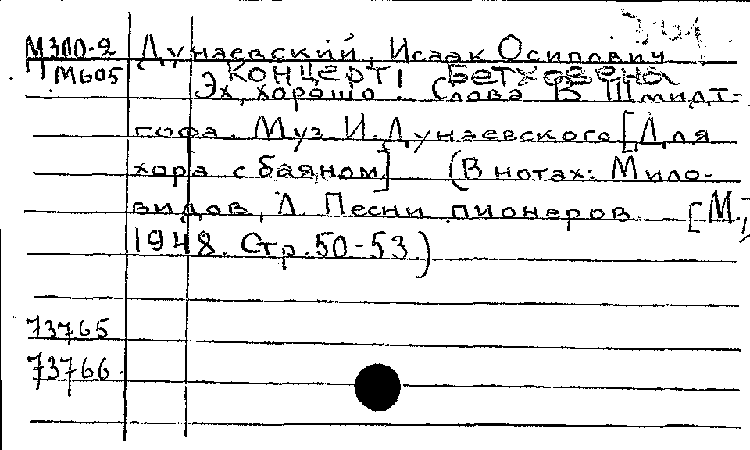 М300-2 Дунаевский, Исаак Осипович
М605 КОНЦЕРТ! БЕТХОВЕНА
Эх, хорошо. Слова В Шмидт-
гофа. Муз И. Дунаевского [Для
хора с баяном] (В нотах: Мило-
видов, Л. Песни пионеров [М.,
1948. Стр. 50-53.)
73765
73766